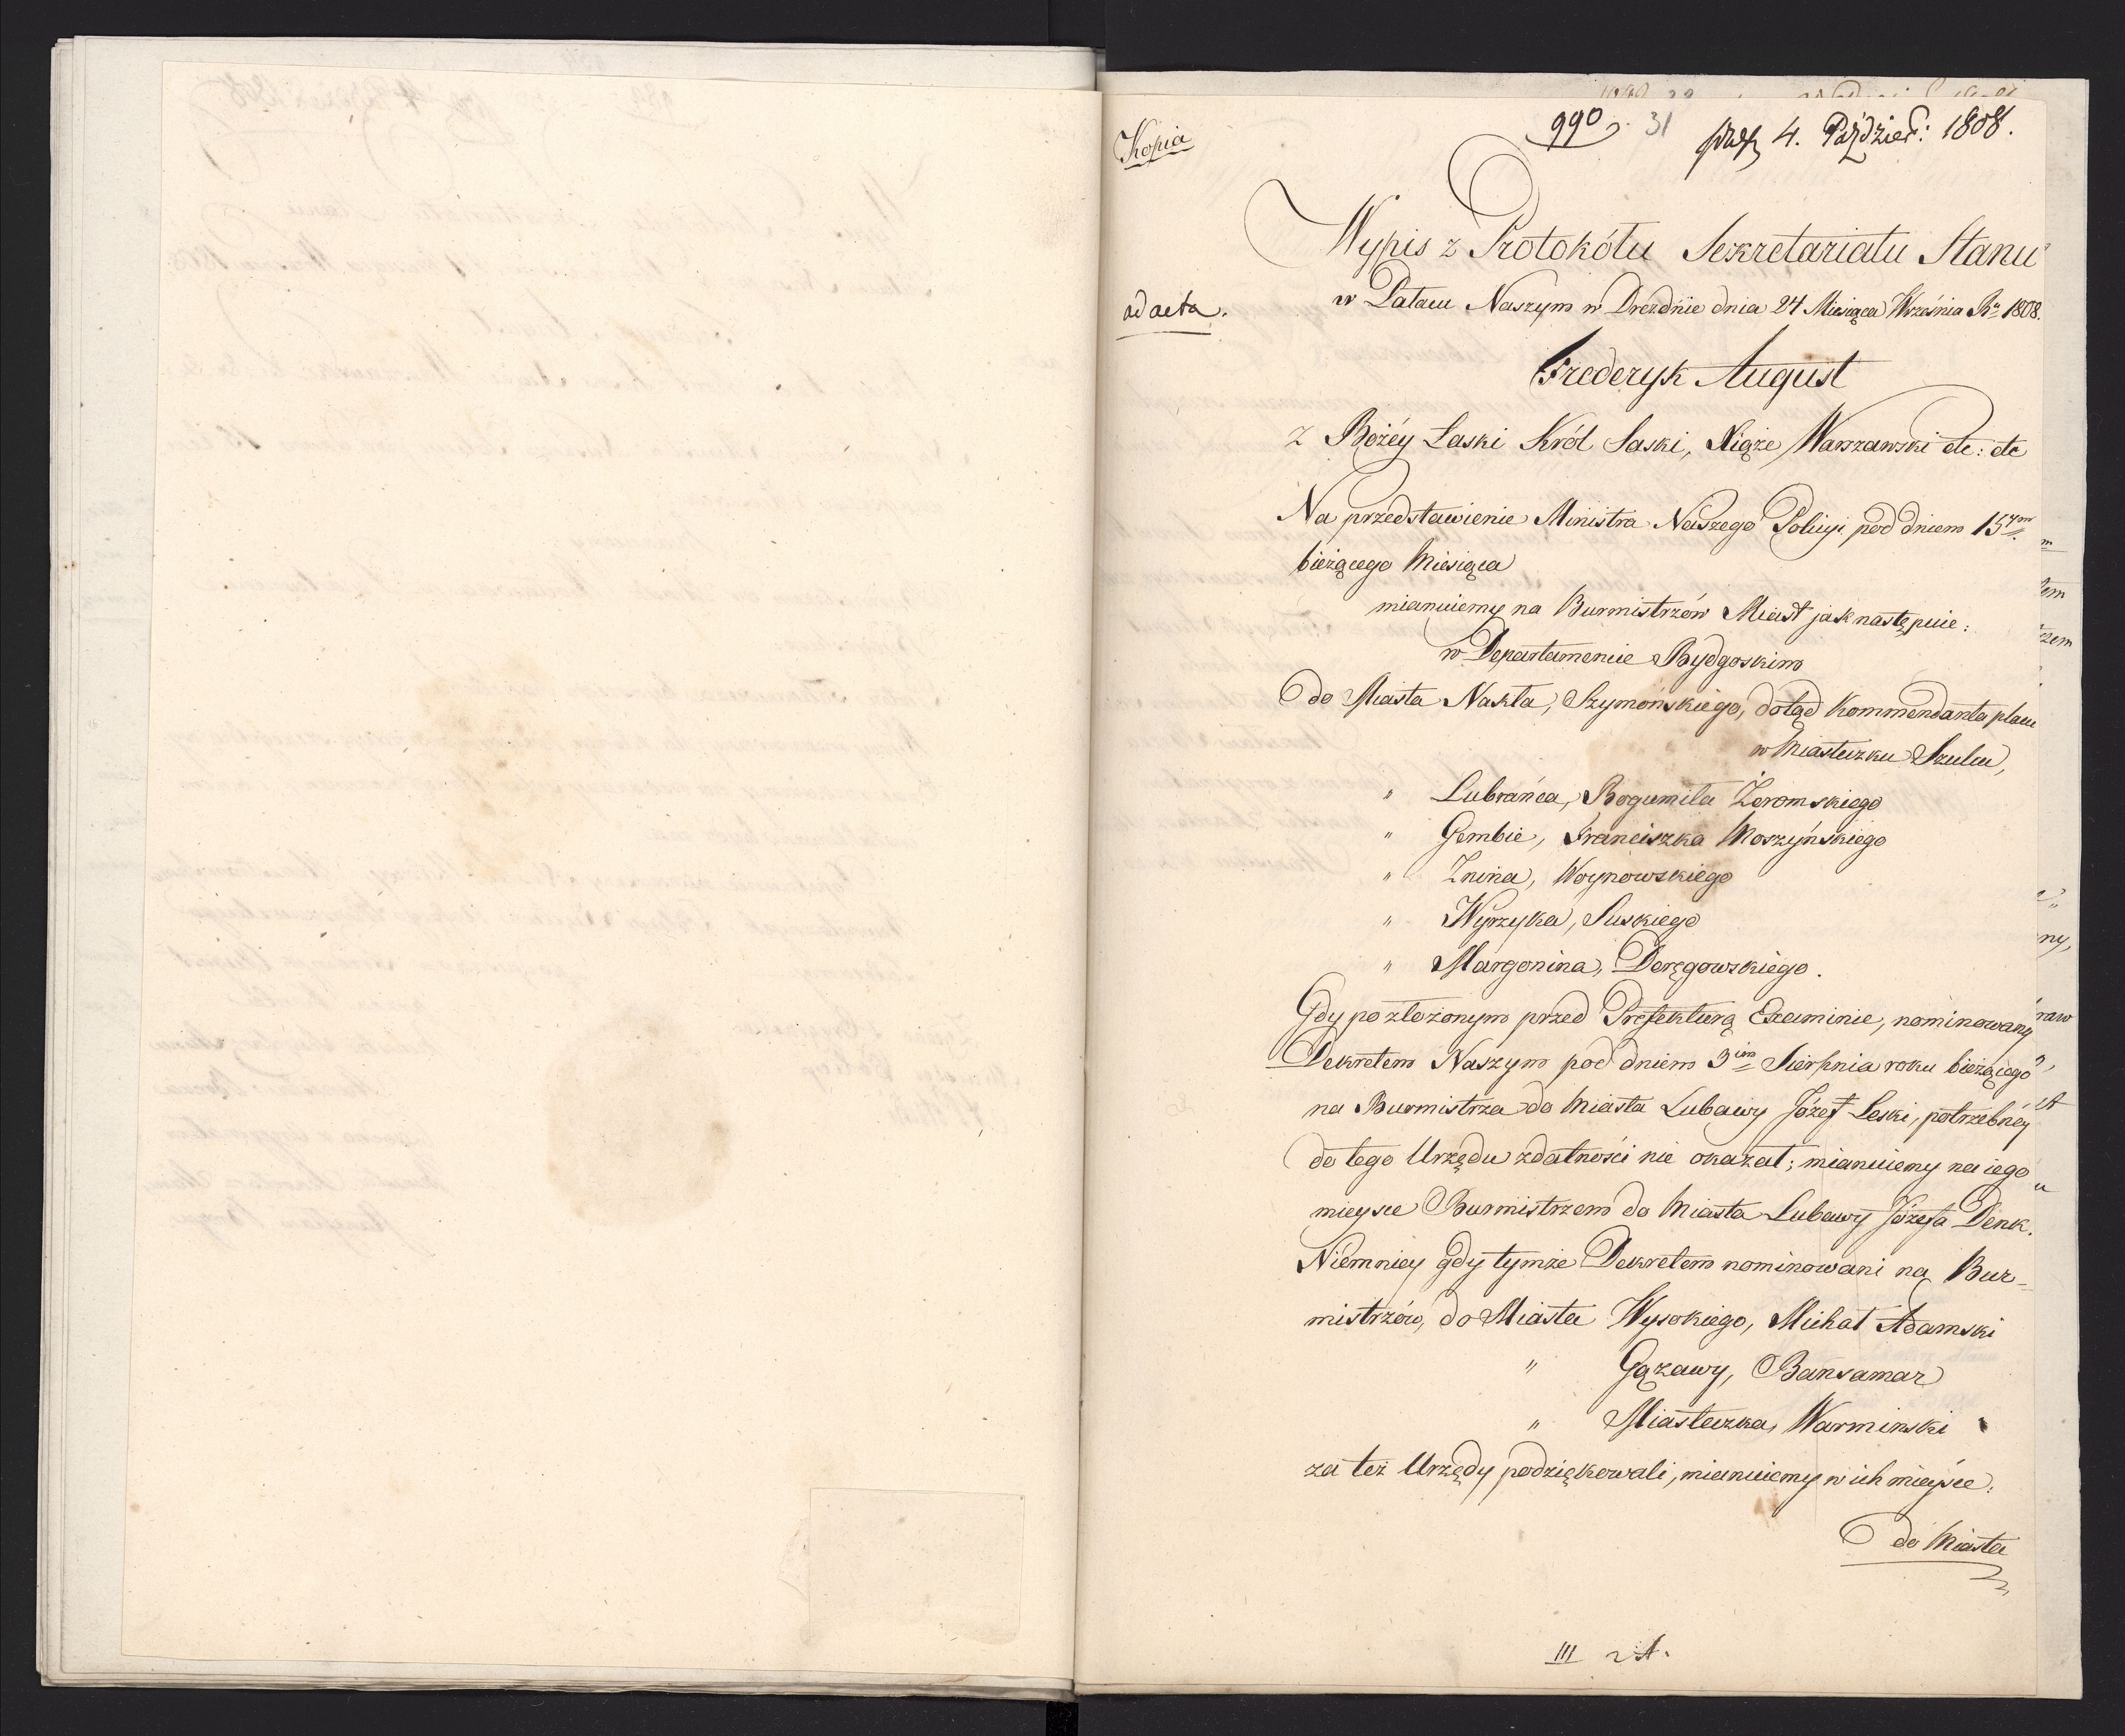 Kopia
990. 31
4. Paździer: 1808.
Wypis z Protokółu Sekretariatu Stanu
ad acta.
w Pałacu Naszym w Dreźdnie dnia 24 Miesiąca Września Ru 1808.
Frederyk August
z Bożéy Łaski Król Saski, Xiąże Warszawski etc: etc
Na przedstawienie Ministra Naszego Policyi pod dniem 15tym
bieżącego Miesiąca
mianuiemy na Burmistrzów Miast jak następuie:
w Departamencie Bydgoskim
do Miasta Nakła, Szymońskiego, dotąd Kommendanta placu
w Miasteczku Szulcu,
" Lubrańca, Bogumiła Żeromskiego
" Gembic, Franciszka Moszyńskiego
" Znina, Woynowskiego
" Wyrzyka, Suskiego
" Margonina, Deręgowskiego.
Gdy po złożonym przed Prefekturą Examinie, nominowany
Dekretem Naszym pod dniem 3im Sierpnia roku bieżącego
na Burmistrza do Miasta Lubawy Józef Leski, potrzebnéy
do tego Urzędu zdatności nie okazał; mianuiemy na iego
mieysce Burmistrzem do Miasta Lubawy Józefa Denk.
Niemniey gdy tymże Dekretem nominowani na Bur-
mistrzów, do Miasta Wysokiego, Michał Adamski
" Gązawy, Bansamar
" Miasteczka, Warminski
za też Urzędy podziękowali, mianuiemy w ich mieysce:
do Miasta
III